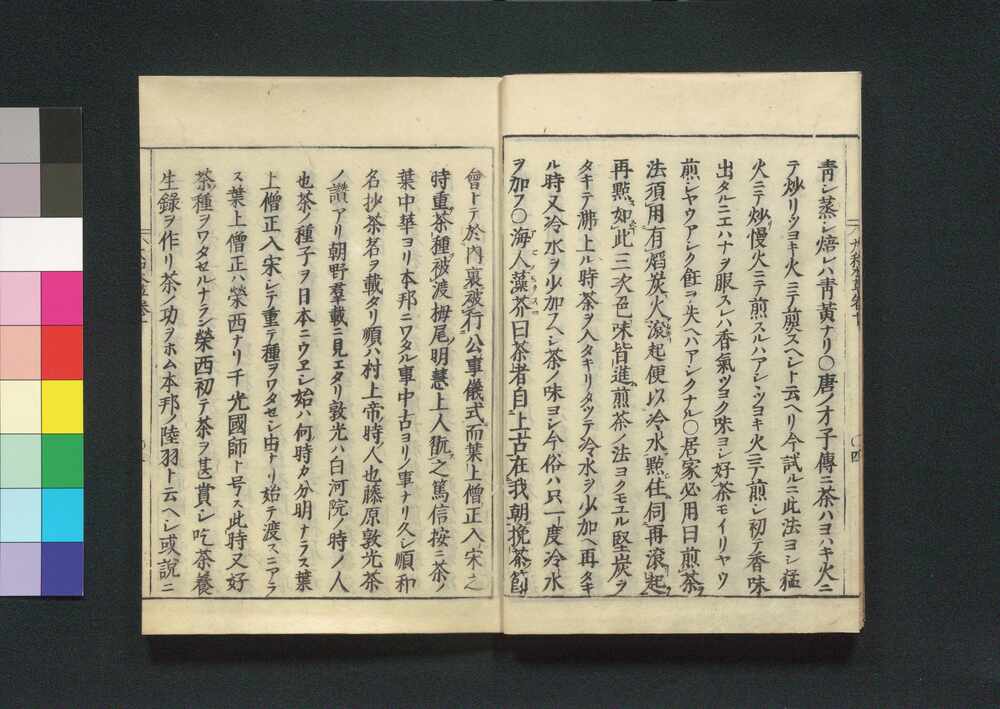 青シ蒸シ焙レハ青黄ナリ〇唐ノ才子傳ニ茶ハヨハキ火ニ
テ炒リツヨキ火ニテ煎スヘシト云ヘリ今試ルニ此法ヨシ猛
火ニテ炒慢火ニテ煎スルハアシヽツヨキ火ニテ煎シ初テ香味
出タルニエハナヲ服スレハ香氣ツヨク味ヨシ好茶モイリヤウ
煎シヤウアシク飪ヲ失ヘハアシクナル〇居家必用曰煎茶
法須用有熖炭火滾起便以冷水㸃住伺再滾起
再㸃如此三次色味皆進煎茶ノ法ヨクモエル堅炭ヲ
タキテ沸上ル時茶ヲ入タキリタツテ冷水ヲ少加ヘ再タキ
ル時又冷水ヲ少加フヘシ茶ノ味ヨシ今俗ハ只一度冷水
ヲ加フ〇海人藻芥曰茶者自上古在我朝挽茶節
會トテ於内裏被行公事儀式而葉上僧正入宋之
時重茶種被渡栂尾明慧上人翫之篤信按ニ茶ノ
葉中華ヨリ本邦ニワタル事中古ヨリノ事ナリ久シ順和
名抄茶名ヲ載タリ順ハ村上帝ノ時ノ人也藤原敦光茶
ノ讃アリ朝野羣載ニ見エタリ敦光ハ白河院ノ時ノ人
也茶ノ種子ヲ日本ニウヱシ始ハ何時カ分明ナラス葉
上僧正入宋シテ重テ種ヲワタセシ由ナリ始テ渡スニアラ
ス葉上僧正ハ榮西ナリ千光國師ト号ス此時又好
茶種ヲワタセルナラシ榮西初テ茶ヲ甚賞シ吃茶養
生録ヲ作リ茶ノ功ヲホム本邦ノ陸羽ト云ヘシ或說ニ